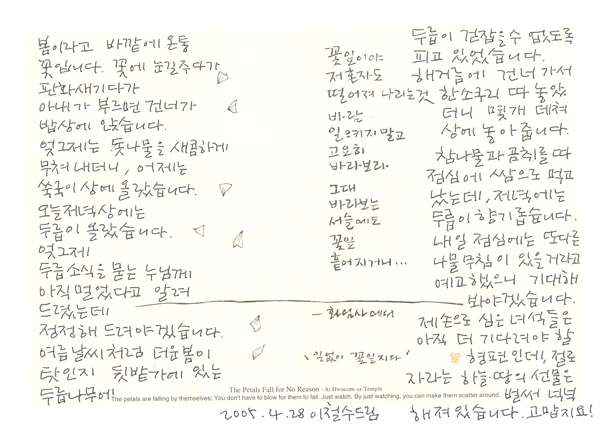 봄이라고 바깥에 온통
꽃입니다. 꽃에 눈길주다가
판화새기다가
아내가 부르면 건너가
밥상에 앉습니다.
엊그제는 돗나물을 새콤하게
무쳐 내더니, 어제는
쑥국이 상에 올랐습니다.
오늘저녁상에는
두릅이 올랐습니다.
엊그제
두릅소식을 묻는 누님께
아직 멀었다고 알려
드렸는데
정정해 드려야겠습니다.
여름 날씨처럼 더운봄이
탓인지 뒷밭가에 있는
두릅나무에
꽃잎이야
저혼자도
떨어져 나리는것
바람
일으키지 말고
고요히
바라보라.
그대
바라보는
서슬에도
꽃잎
흩어지거니...
- 화엄사에서
'일없이 꽃잎지다'
The Petals Fall for No Reason - At Hwaeom-sa Temple
The petals are falling by themselves; You don't have to blow for them to fall. Just watch. By just watching, you can make them scatter around.
2005.4.28 이철수드림
두릅이 걷잡을수 없도록
피고 있었습니다.
해거름에 건너가서
한소쿠리 따 놓았
더니 몇개 데쳐
상에 놓아줍니다.
참나물과 곰취를 따
점심에 쌈으로 먹고
났는데, 저녁에는
두릅이 향기롭습니다.
내일 점심에는 또다른
나물무침이 있을거라고
예고했으니 기대해
봐야겠습니다.
제손으로 심은 녀석들은
아직 더 기다려야 할
형편인데, 절로
자라는 하늘·땅의 선물은
벌써 넉넉
해져있습니다. 고맙지요!